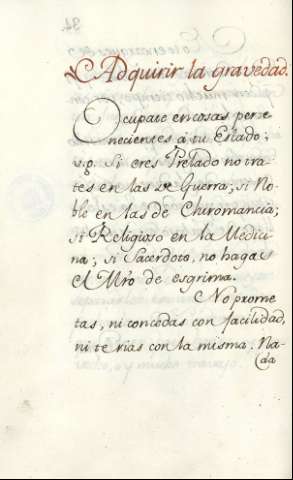 Adquirir la gravedad.
Ocupate en cosas perte
necientes á tu Estado;
v.g. Si eres Prelado no tra
tes en las de Guerra; si No-
ble en las de Chiromancia;
si Religioso en la Medici
na; si Sacerdote, no hagas
el Mro de esgrima.
No prome
tas, ni concedas con facilidad,
ni te rias con la misma. Na-
da